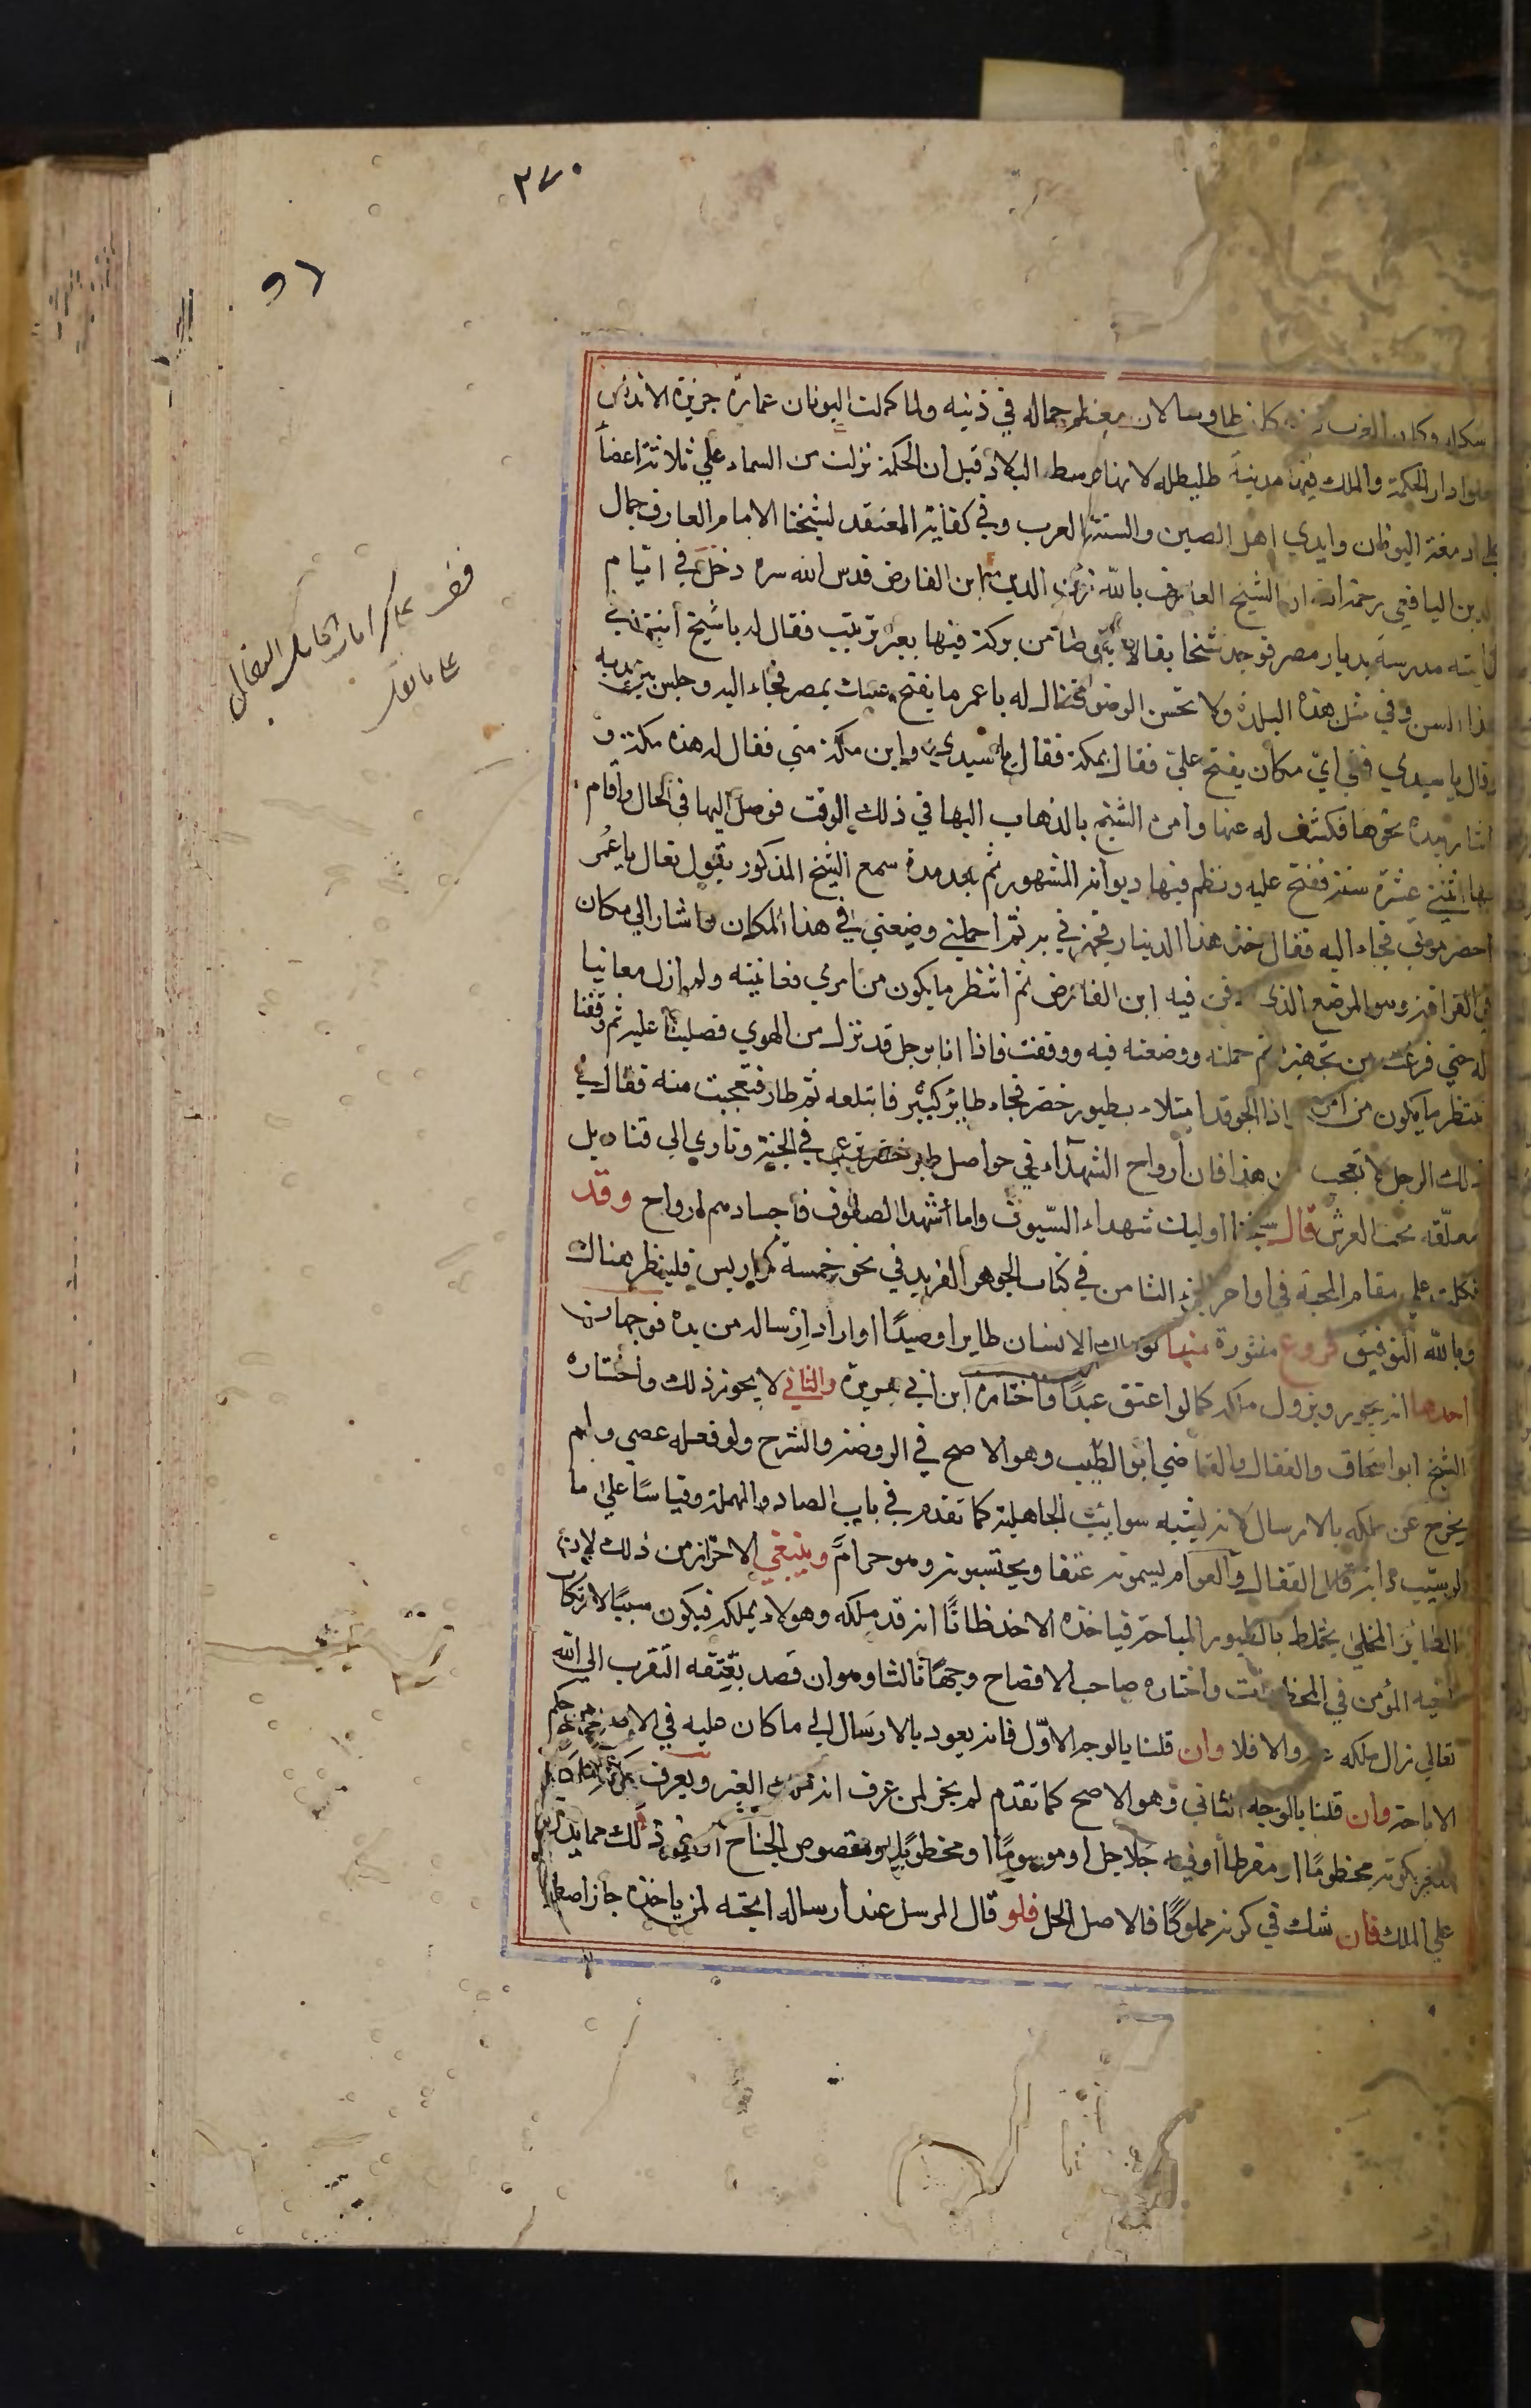 ٣٧٠
وكان الغرب كان طاوسا لان معظم جماله في ذنبه ولما كملت اليونان عمارة جزيرة الاندلس
دار الحكمة والملك فيها مدينة طليطلة لانها وسط البلاد قيل ان الحكمة نزلت من السماء علي ثلاثة اعضاً
علي ادمغة اليونان وايدي اهل الصين والسنة العرب وفي كفاية المعتقد لشيخنا الامام العارف جمال
الدين اليافعي رحمه الله ان الشيخ العارف بالله الدين ابن الفارض قدس الله سره دخل في ايام
بدايته مدرسة بديار مصر فوجد شيخا بقالا يتوضا من بركة فيها بغير ترتيب فقال له يا شيخ انت في
هذا السن وفي مثل هذه البلدة ولا تحسن الوضوء فقال له يا عمر ما يفتح عليك بمصر فجاء اليه وجلس بين يديه
وقال يا سيدي ففي اي مكان يفتح علي فقال بمكة فقال يا سيدي واين مكة مني فقال له هذه مكة و
اشار بيده نحوها فكشف له عنها وامره الشيخ بالذهاب اليها في ذلك الوقت فوصل اليها في الحال واقام
بها اثنتي عشرة سنة ففتح عليه ونظم فيها ديوانه المشهور ثم بعد مدة سمع الشيخ المذكور يقول تعال يا عمر
احضر موتي فجاء اليه فقال خذ هذا الدينار فجهزني به ثم احملني وضعني في هذا المكان واشار الي مكان
في القرافة وهو الموضع الذي دفن فيه ابن الفارض ثم انتظر ما يكون من امري فعانيته ولم ازل معانيا
له حتي فرغت من تجهيزه ثم حملته ووضعته فيه ووقفت فاذا انا برجل قد نزل من الهوي فصلينا عليه ثم وقفنا
ننتظر ما يكون من امره اذا الجو قد امتلاء بطيور خضر فجاء طاير كبير فابتلعه ثم طار فتعجبت منه فقال لي
ذلك الرجل لا تعجب من هذا فان ارواح الشهدآء في حواصل طير خضر ترعي في الجنة وتاوي الي قناديل
معلقه تحت العرش قال شيخنا اوليك شهداء السيوف واما شهدا الصفوف فاجسادهم ارواح وقد
تكلمت علي مقام المحبة في اواخر الجزء الثامن في كتاب الجوهر الفريد في نحو خمسة كراريس فلينظر هناك
وبالله التوفيق فروع منثورة منها لو ملك الانسان طايرا او صيدًا اواراد ارساله من يده فوجهان
احدهما انه يجوز ويزول ملكه كما لو اعتق عبدًا واختاره ابن ابي هريرة والثاني لا يجوز ذلك واختاره
الشيخ ابو اسحاق والقفال والقاضي ابو الطيب وهو الاصح في الروضة والشرح ولو فعله عصي ولم
يخرج عن ملكه بالارسال لانه يشبه سوائب الجاهلية كما تقدم في باب الصاد المهملة وقياسًا علي ما
لو سيب دابته قال القفال والعوام يسمونه عتقا ويحتسبونه وهو حرامٌ وينبغي الاحتراز من ذلك لان
الطاير المخلي يختلط بالطيور المباحة فياخذه الاخذ ظانًّا انه قد ملكه وهو لا يملكه فيكون سببًا لارتكاب
اخيه المؤمن في المحظورات واختاره صاحب الافصاح وجهًا ثالثا وهو ان قصد بعتقه التقرب الي الله
تعالي زال ملكه عنه والا فلا وان قلنا بالوجه الاوّل فانه يعود بالارسال الي ما كان عليه في الاصل من حكم
الاباحة وان قلنا بالوجه الثاني وهو الاصح كما تقدم لم يجز لمن عرف انه ملك الغير ويعرف
بكونه محظومًا او مقرطا او فيه جلاجل او موسومًا او مخطوبًا او مقصوص الجناح او نحو ذلك مما يدل
علي الملك فان شك في كونه مملوكًا فالاصل الحل فلو قال المرسل عند ارساله ابحته لمن ياخذه جاز اصطياده